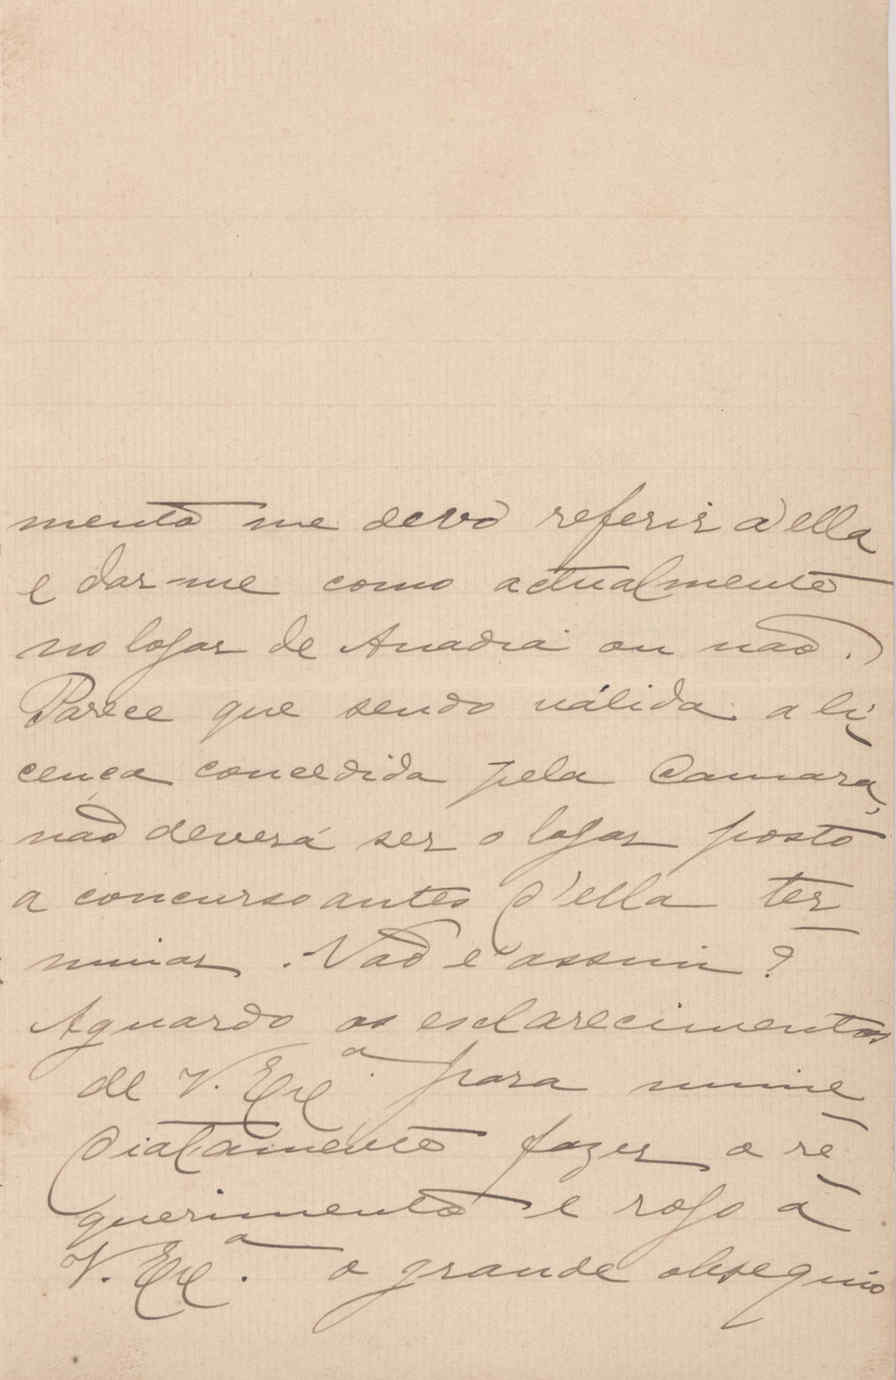 mento me devo referir a ella
e dar-me como actualmente
no logar de Anadia ou não.
Parece que sendo válida a li-
cença concedida pela Camara,
não deverá ser o logar posto
a concurso antes d'ella ter-
minar. Não é assim?
Aguardo os esclarecimentos
de V. Exª. para imme
diatamente fazer o re-
querimento e rogo a
V. Exª. o grande obsequio